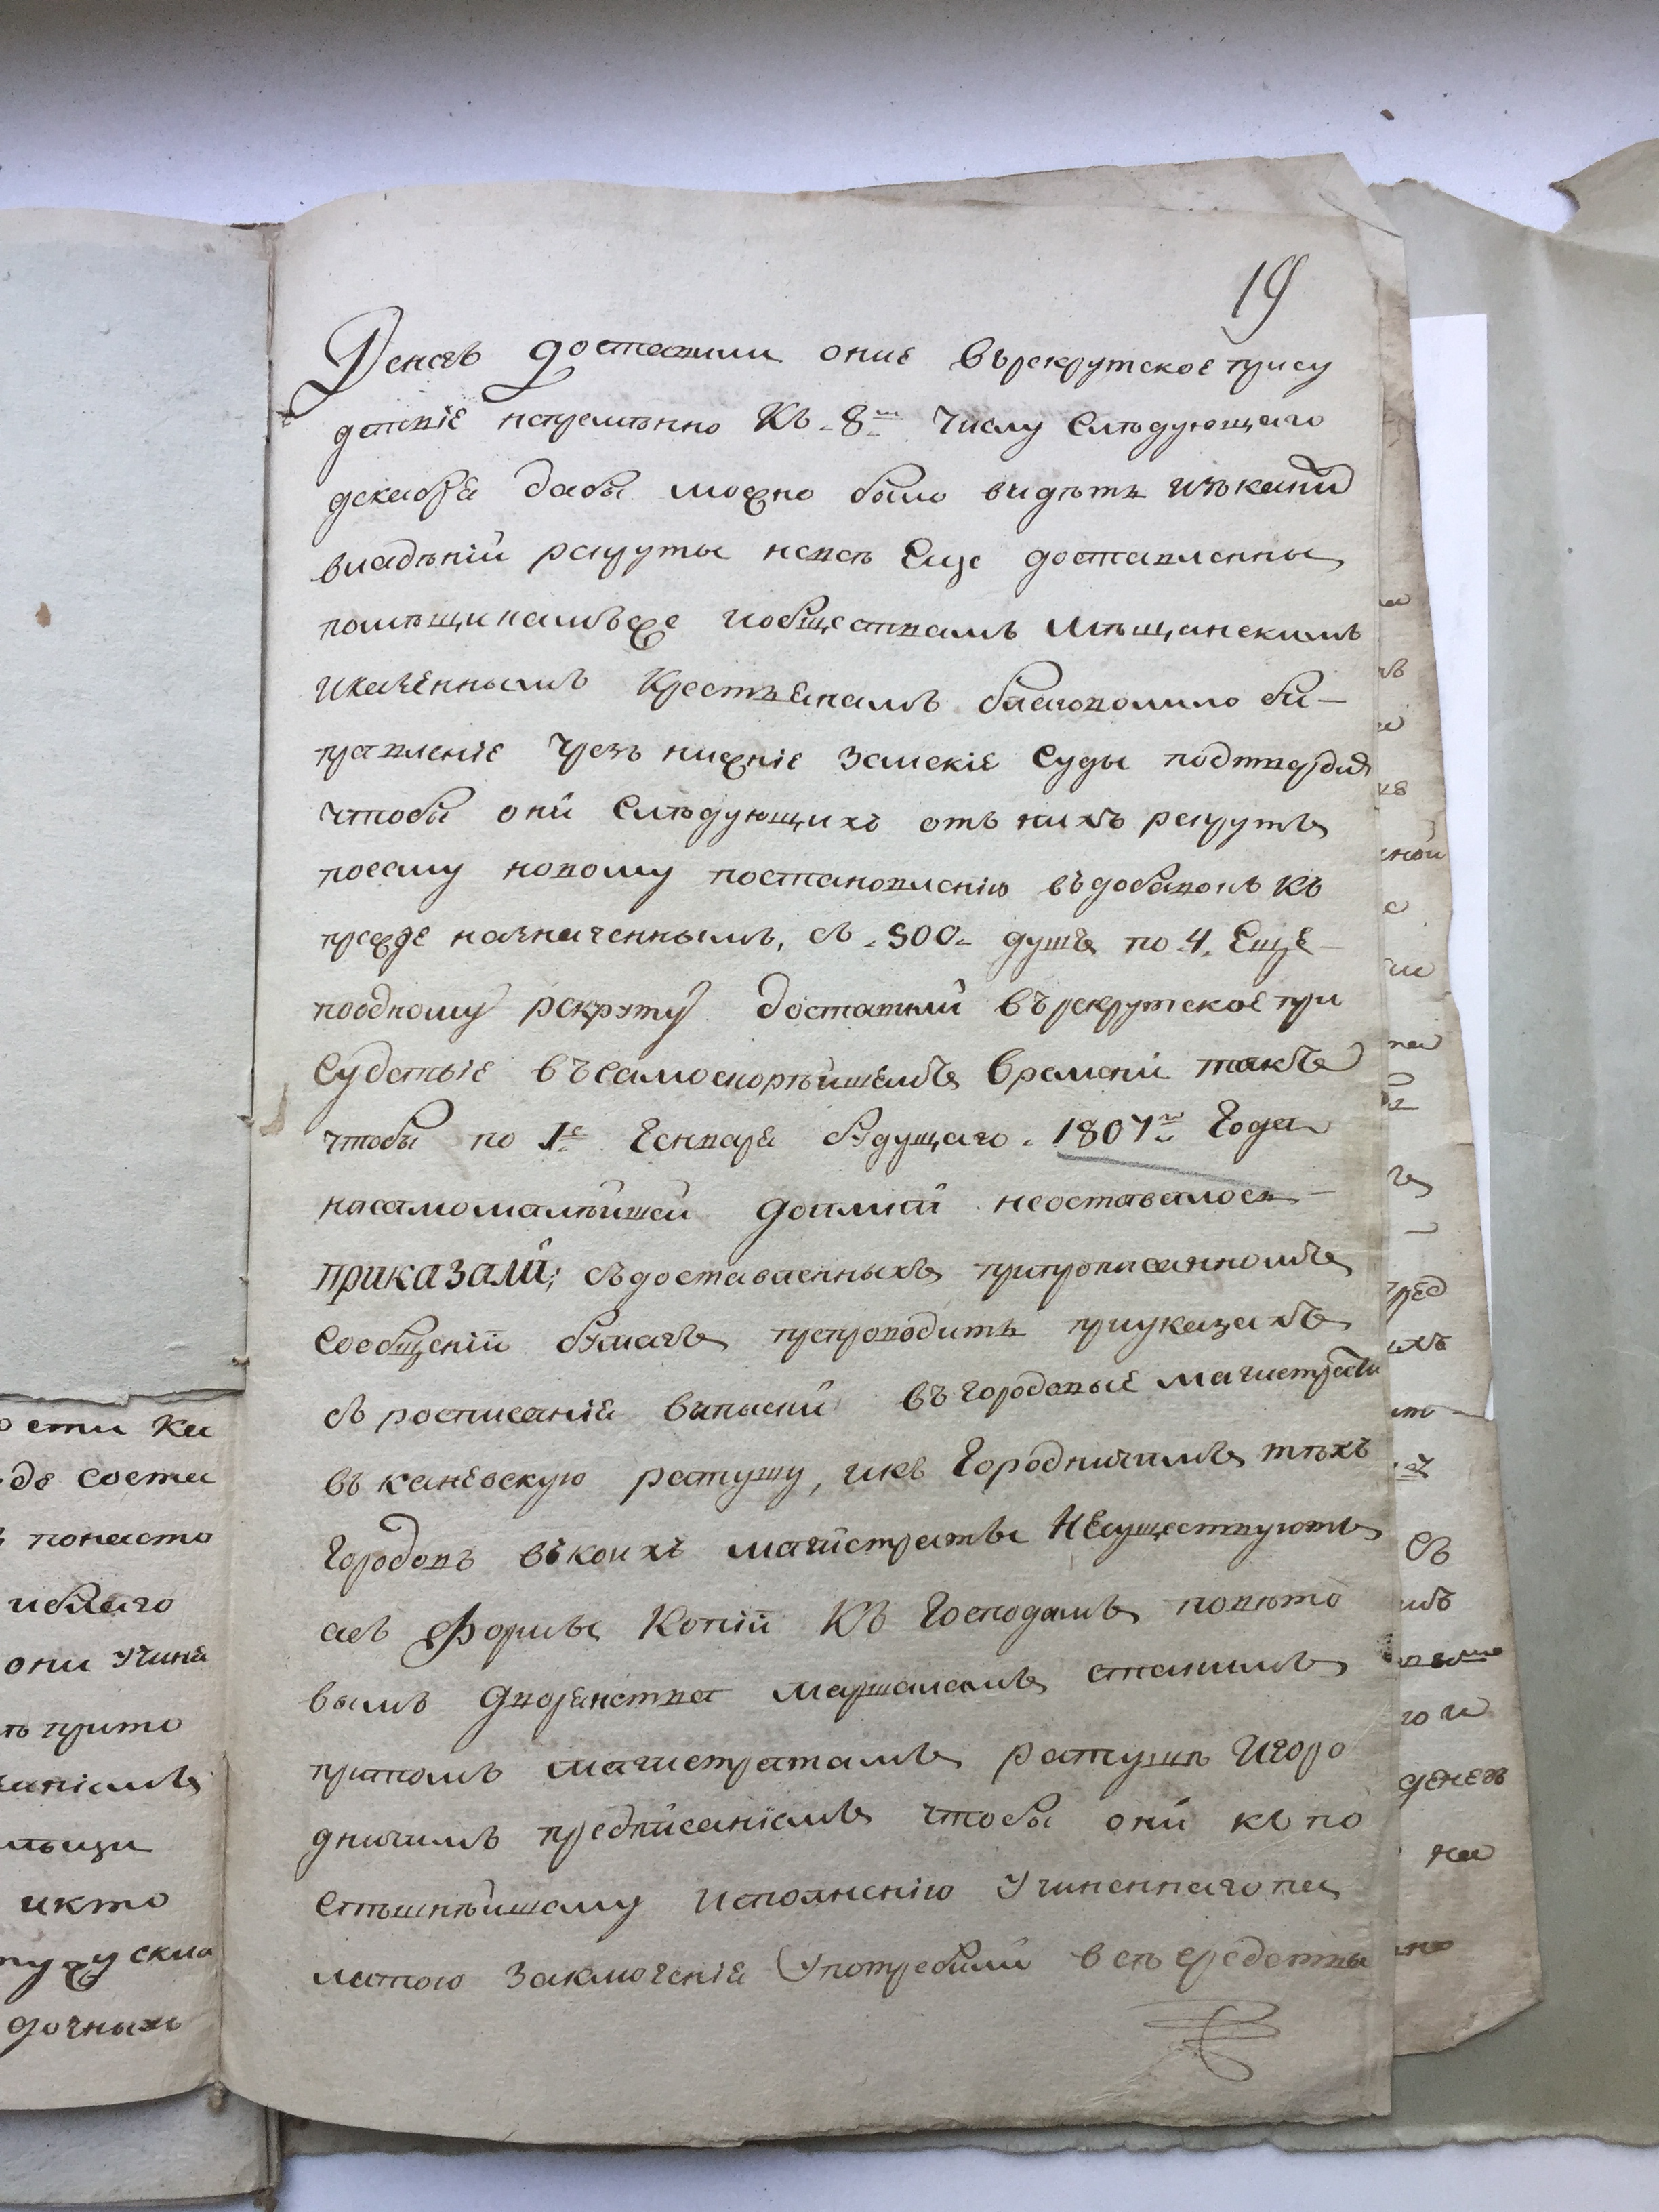 19
Денегъ доставили оние въ рекрутское прису
дствіе непремѣнно Къ 8му числу Слѣдующаго
декабря дабы можно было видѣть изъ какий
владѣний рекруты невсѣ Еще доставленны
помѣщикамъ же и обществамъ Мѣщанскимъ
и казеннымъ Крестьянамъ благоволило бы
правленіе чрезъ нижніе Земскіе Суды подтвердить
чтобы они Слѣдующихъ отъ нихъ рекрутъ
поеему новому постановленію въ добавокъ къ
прежде назначеннымъ, съ 500 душъ по 4. Еще
по одному рекруту доставили въ рекрутское при
Судствіе въ самоскорѣйшемъ времени такъ
чтобы по 1е Генваря будущаго 1807го Года
насамомалѣйшей доимки неоставалось
приказали; съ доставленныхъ припрописанномъ
Сообщений бумагъ препроводить приуказахъ
съ росписания выписки въ городовые магистраты
въ каневскую ратушу, икъ Городничимъ тѣхъ
Городовъ въ коихъ магистраты НЕсуществуютъ
асъ Формы Копии Къ Господамъ повѣто
вымъ дворянства маршаламъ стакимъ
притомъ магистратамъ ратушѣ Игоро
дничимъ предписаніемъ чтобы они къ по
Спѣшнѣйшему исполнению Учиненнаго па
латою Заключенія Употребили всѣ средствы
ости Ка
де соста
понасто
они Учине
прито
икто
дочныхъ
ной
денегъ
на